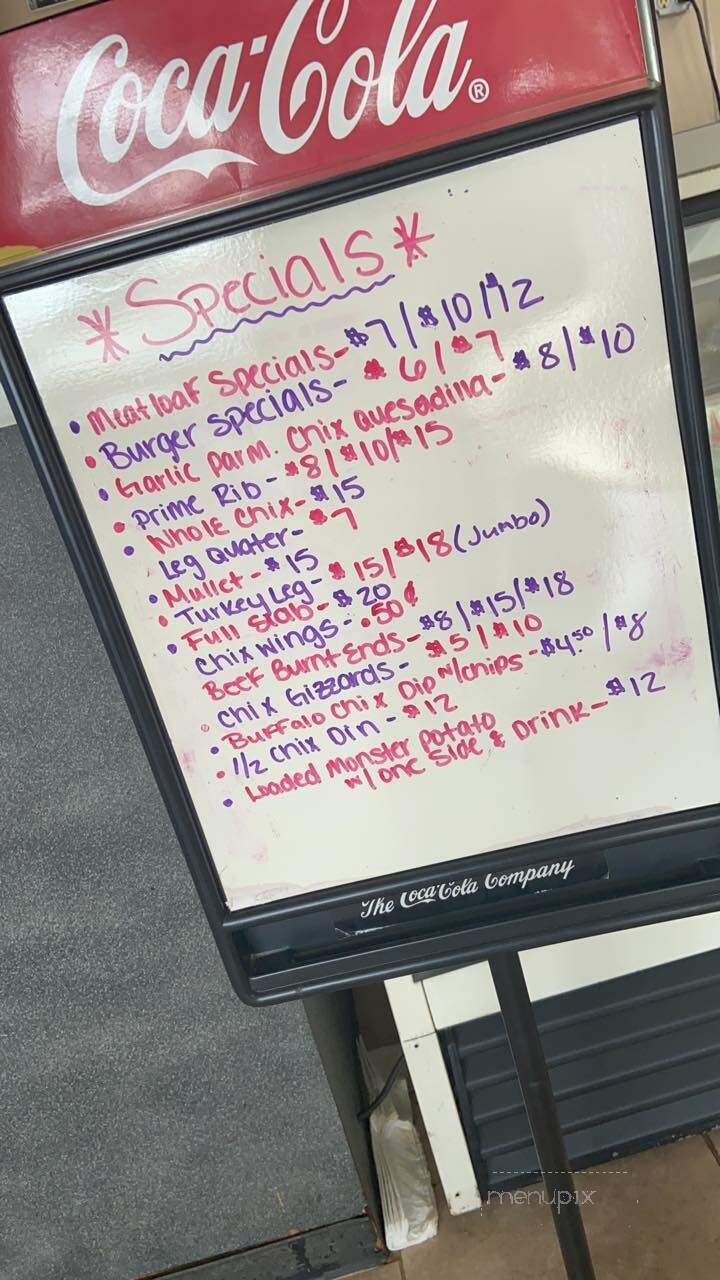 Coca-Cola®
*Specials*
• Meatloaf Specials - $7/$10/$12
• Burger Specials - $6/$7
• Garlic Parm. Chix Quesadilla - $8/$10
• Prime Rib - $8/$10/$15
• Whole Chix - $15
Leg Quater - $7
• Mullet - $15
• Turkey Leg - $15/$18 (Jumbo)
• Full Slab - $20
Chix Wings - .50¢
Beef Burnt Ends - $8/$15/$18
• Chix Gizzards - $5/$10
• Buffalo Chix Dip w/chips - $4.50/$8
• 1/2 Chix Din - $12
• Loaded Monster Potato
w/ one side & Drink - $12
The Coca-Cola Company
menupix